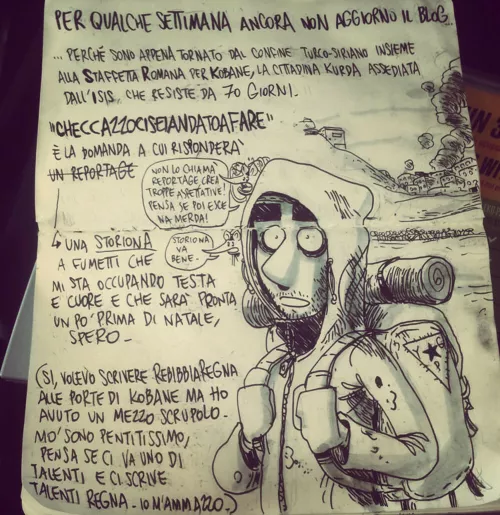 PER QUALCHE SETTIMANA ANCORA NON AGGIORNO IL BLOG...
... PERCHÉ SONO APPENA TORNATO DAL CONFINE TURCO-SIRIANO INSIEME
ALLA STAFFETTA ROMANA PER KOBANE, LA CITTADINA KURDA ASSEDIATA
DALL'ISIS CHE RESISTE DA 70 GIORNI.
"CHECCAZZOCISEIANDATOAFARE"
È LA DOMANDA A CUI RISPONDERÀ
UN REPORTAGE
NON LO CHIAMÀ
REPORTAGE, CREA
TROPPE ASPETTATIVE!
PENSA SE POI ESCE
NA MERDA!
UNA STORIONA
A FUMETTI CHE
MI STA OCCUPANDO TESTA
E CUORE E CHE SARÀ PRONTA
UN PO' PRIMA DI NATALE,
SPERO.
STORIONA
VA
BENE.
(SI, VOLEVO SCRIVERE REBIBBIA REGNA
ALLE PORTE DI KOBANE MA HO
AVUTO UN MEZZO SCRUPOLO.
MO' SONO PENTITISSIMO,
PENSA SE CI VA UNO DI
TALENTI E CI SCRIVE
TALENTI REGNA. IO M'AMMAZZO.)